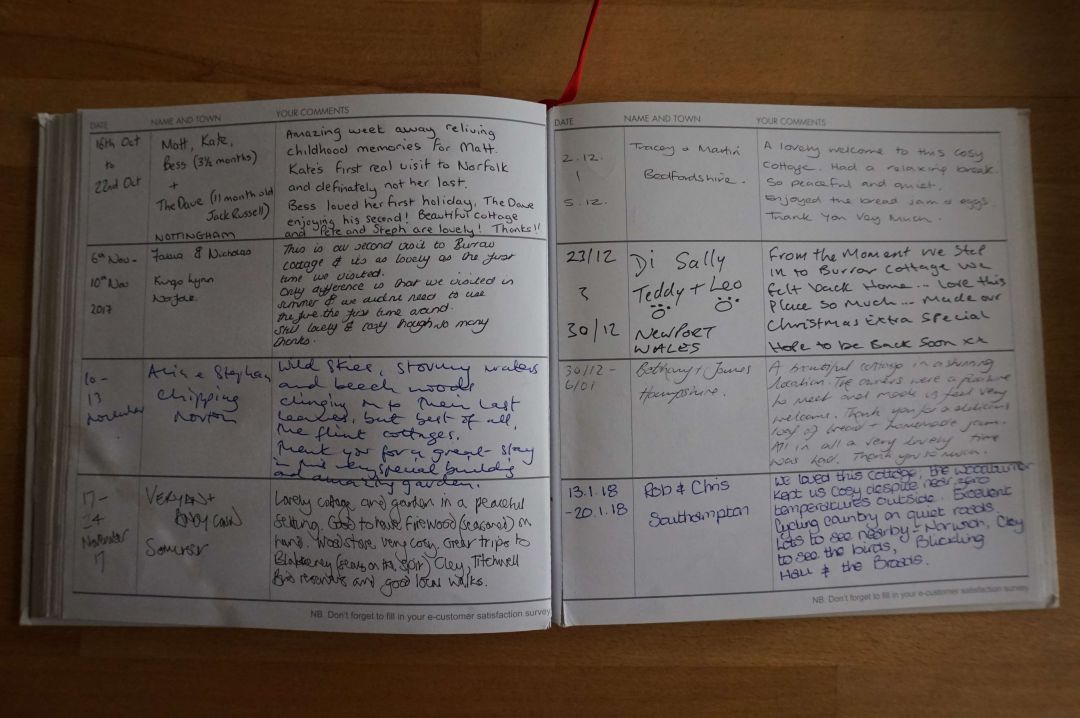 DATE NAME AND TOWN YOUR COMMENTS
16th Oct
to
22nd Oct
Matt, Kate,
Bess (3½ months)
+
The Dave (11 month old
Jack Russell)
NOTTINGHAM
Amazing week away reliving
childhood memories for Matt.
Kate's first real visit to Norfolk
and definately not her last.
Bess loved her first holiday, The Dave
enjoying his second! Beautiful cottage
and Pete and Steph are lovely! Thanks!!
6th Nov -
10th Nov
2017
& Nicholas
Kings Lynn
Norfolk
This is our second visit to Burrow
cottage & its as lovely as the first
time we visited.
Only difference is that we visited in
summer & we didnt need to use
the fire the first time around.
Still lovely & cosy though. So many
thanks.
10 -
13
November
& Stephen
Chipping
Norton
Wild skies, stormy waters
and beech woods
clinging on to their last
leaves, but best of all,
the flint cottages.
Thank you for a great stay
in this very special building
and amazing garden.
17 -
24
November
17
Somerset
Lovely cottage and garden in a peaceful
setting. Good to have firewood (seasoned) on
hand. Woodstove very cosy. Great trips to
Blakeney (seals on the spit) Cley, Titchwell
Bird reserves and good local walks.
NB. Don't forget to fill in your e-customer satisfaction survey
DATE NAME AND TOWN YOUR COMMENTS
2.12.
5.12.
Tracey & Martin
Bedfordshire.
A lovely welcome to this cosy
cottage. Had a relaxing break.
So peaceful and quiet.
Enjoyed the bread jam & eggs.
Thank You Very Much.
23/12
30/12
Di Sally
Teddy + Leo
NEWPORT
WALES
From the Moment we step
in to Burrow Cottage we
felt back Home... love this
Place so Much... Made our
Christmas Extra Special
Hope to be Back Soon xx
30/12 -
6/01
Bethany + James
Hampshire.
A beautiful cottage in a stunning
location. The owners were a pleasure
to meet and made us feel very
welcome. Thank you for a delicious
loaf of bread + homemade jam.
All in all a very lovely time
was had. Thank you so much.
13.1.18
-20.1.18
Rob & Chris
Southampton
We loved this cottage, the woodburner
kept us cosy despite near zero
temperatures outside. Excellent
cycling country on quiet roads.
Lots to see nearby - Norwich, Cley
to see the birds, Blickling
Hall & the Broads.
NB. Don't forget to fill in your e-customer satisfaction survey